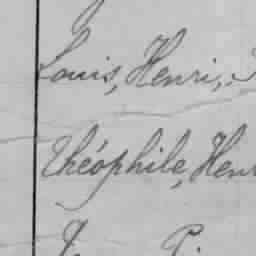 Louis, Henri,
Théophile, Henr